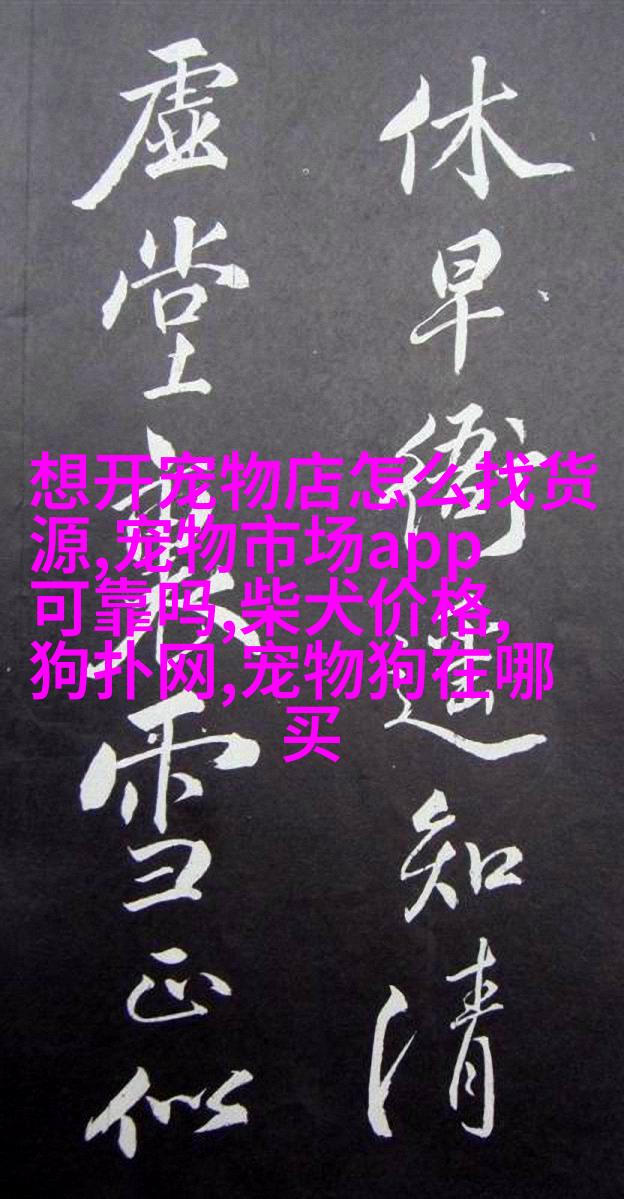 休早衙遥知清
虚堂雪正似
想开宠物店怎么找货
源,宠物市场app
可靠吗,柴犬价格,
狗扑网,宠物狗在哪
买